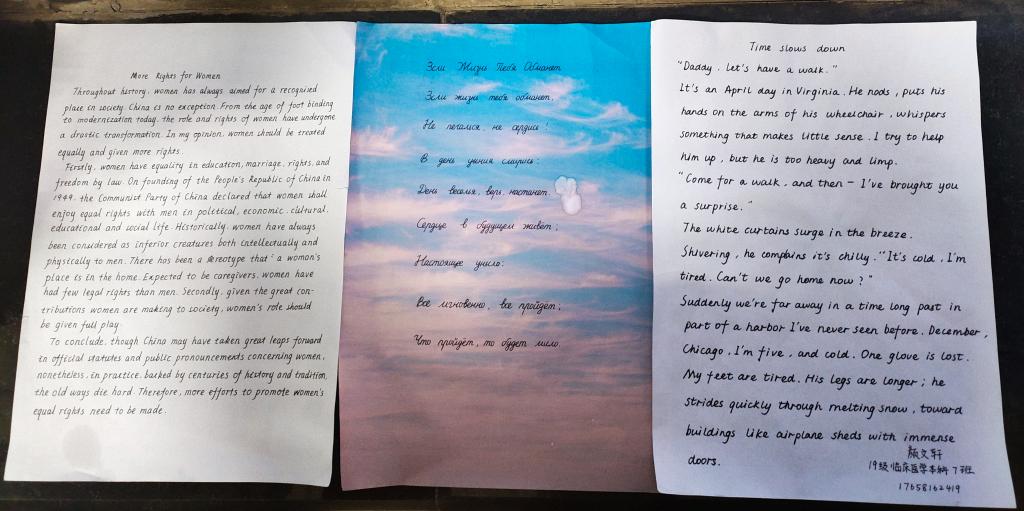 More Rights for Women
Throughout history, women has always aimed for a recognized
place in society. China is no exception. From the age of foot binding
to modernization today, the role and rights of women have undergone
a drastic transformation. In my opinion, women should be treated
equally and given more rights.
Firstly, women have equality in education, marriage, rights, and
freedom by law. On founding of the People's Republic of China in
1949, the Communist Party of China declared that women shall
enjoy equal rights with men in political, economic, cultural,
educational and social life. Historically, women have always
been considered as inferior creatures both intellectually and
physically to men. There has been a stereotype that a woman's
place is in the home. Expected to be caregivers, women have
had few legal rights than men. Secondly, given the great con-
tributions women are making to society, women's role should
be given full play.
To conclude, though China may have taken great leaps forward
in official statutes and public pronouncements concerning women,
nonetheless, in practice, backed by centuries of history and tradition,
the old ways die hard. Therefore, more efforts to promote women's
equal rights need to be made.
Зсли Жизнь Тебя Обманет
Зсли жизнь тебя обманет,
Не печалься, не сердись!
В день уныния смирись:
День веселья, верь, настанет.
Сердце в будущем живёт;
Настоящее уныло:
Всё мгновенно, всё пройдёт;
Что пройдёт, то будет мило.
Time slows down
"Daddy, let's have a walk."
It's an April day in Virginia. He nods, puts his
hands on the arms of his wheelchair, whispers
something that makes little sense. I try to help
him up, but he is too heavy and limp.
"Come for a walk, and then — I've brought you
a surprise."
The white curtains surge in the breeze.
Shivering, he complains it's chilly. "It's cold, I'm
tired. Can't we go home now?"
Suddenly we're far away in a time long past in
part of a harbor I've never seen before. December,
Chicago, I'm five, and cold. One glove is lost.
My feet are tired. His legs are longer; he
strides quickly through melting snow, toward
buildings like airplane sheds with immense
doors.
颜文轩
19级临床医学本科7班
17658162419